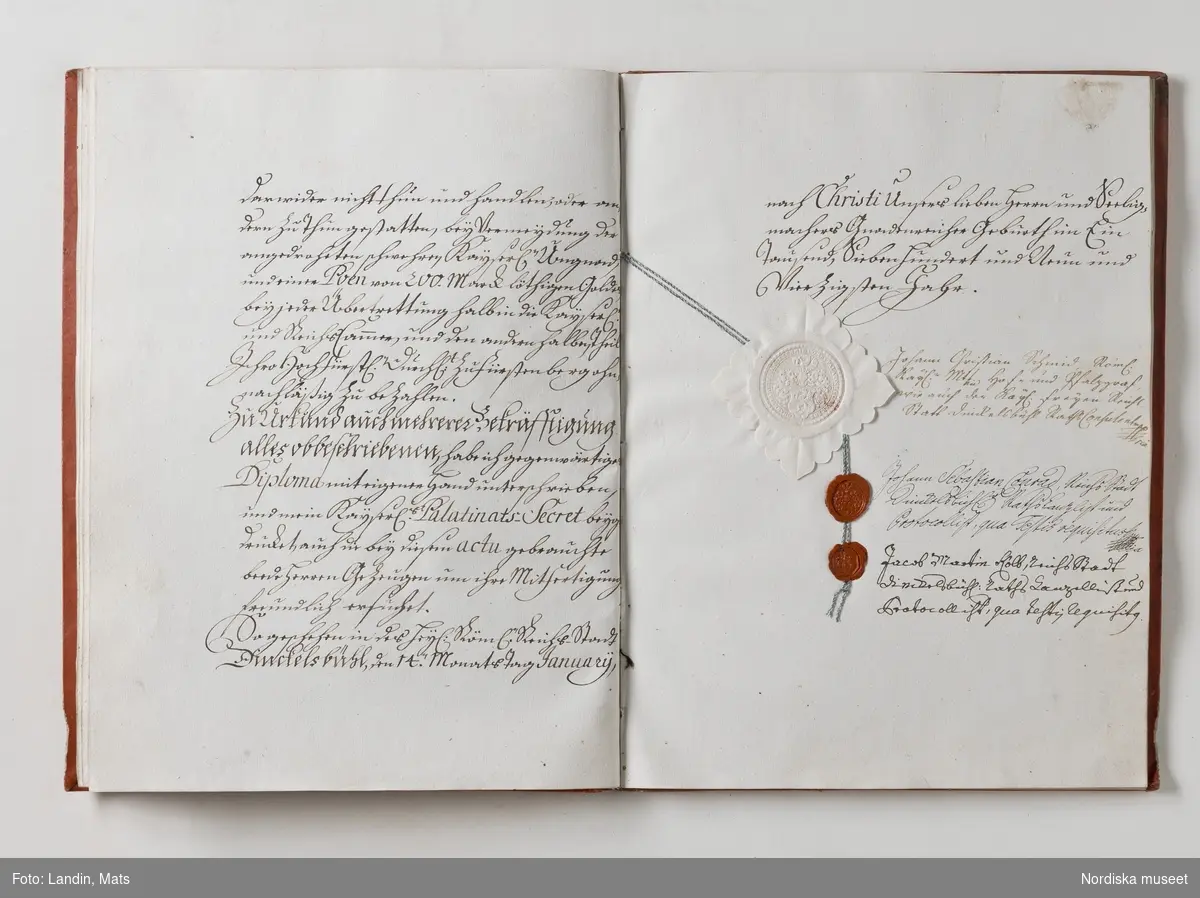 darwider nicht thun und handlen, oder an,
dern zu thun gestatten, bey Vermeydung der
angedroheten schwehren Kayserl. Ungnad,
und einer Poen von 200. Marck löthigen Golds
bey jeder Übertrettung halb in die Kayserl.
und Reichs Cammer, und den andern halben Theil
Ihro Hochfürstl. Durchl. zu Fürstenberg ohn,
nachläßig zu bezahlen.
Zu Urkund auch mehrerer Bekräfftigung
alles obbeschriebenen, hab ich gegenwärtiges
Diploma mit eigener Hand unterschrieben,
und mein Kayserl. Palatinats-Secret beyge
drucket, auch in bey diesem actu gebrauchte
beede Herren Gezeugen um ihre Mitfertigung
freundlich ersuchet.
So geschehen in des Heyl. Röm. Reichs-Stadt
Dinckelsbühl, den 14. Monats Tag January,
nach Christi Unsers lieben Herrn und Seelig,
machers Gnadenreicher Geburth im Ein
Tausend, Sieben hundert und Neun und
Vierzigsten Jahr.
Johann Christian Schmid, Röml.
Kayl. Mtt. Hof- und Pfalzgraf
wie auch der Kayl. freyen Reichs
Stadt Dinckelsbühl Rath Consulent
Johann Sebastian Conrad, Reichs Stadt
Dinckelsbühl. Raths Canzelist und
Protocollist, qua testis requisitus
Jacob Martin Reichs Stadt
Dinckelsbühl. Raths Canzellist und
Protocollist, qua testis requisitg.
Foto: Landin, Mats
Nordiska museet